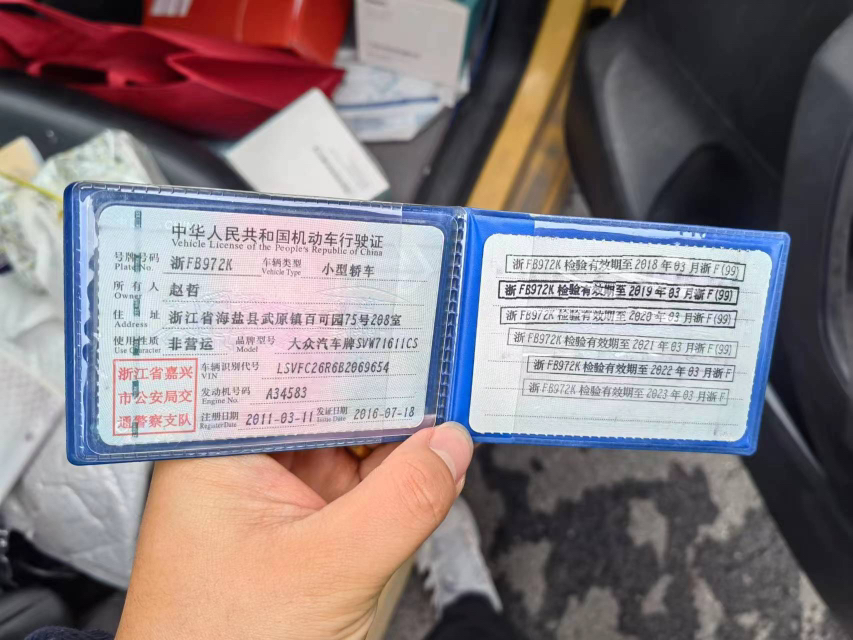 中华人民共和国机动车行驶证
Vehicle License of the People's Republic of China
号牌号码 浙FB972K 车辆类型 小型轿车
Plate No. Vehicle Type
所有人 赵哲
Owner
住址 浙江省海盐县武原镇百可园75号208室
Address
使用性质 非营运 品牌型号 大众汽车牌SVW71611CS
Use Character Model
浙江省嘉兴
市公安局交
通警察支队
车辆识别代号 LSVFC26R6B2069654
VIN
发动机号码 A34583
Engine No.
注册日期 2011-03-11 发证日期 2016-07-18
Register Date Issue Date
浙FB972K 检验有效期至2018年03月浙F(99)
浙FB972K 检验有效期至2019年03月浙F(99)
浙FB972K 检验有效期至2020年03月浙F(99)
浙FB972K 检验有效期至2021年03月浙F(99)
浙FB972K 检验有效期至2022年03月浙F
浙FB972K 检验有效期至2023年03月浙F